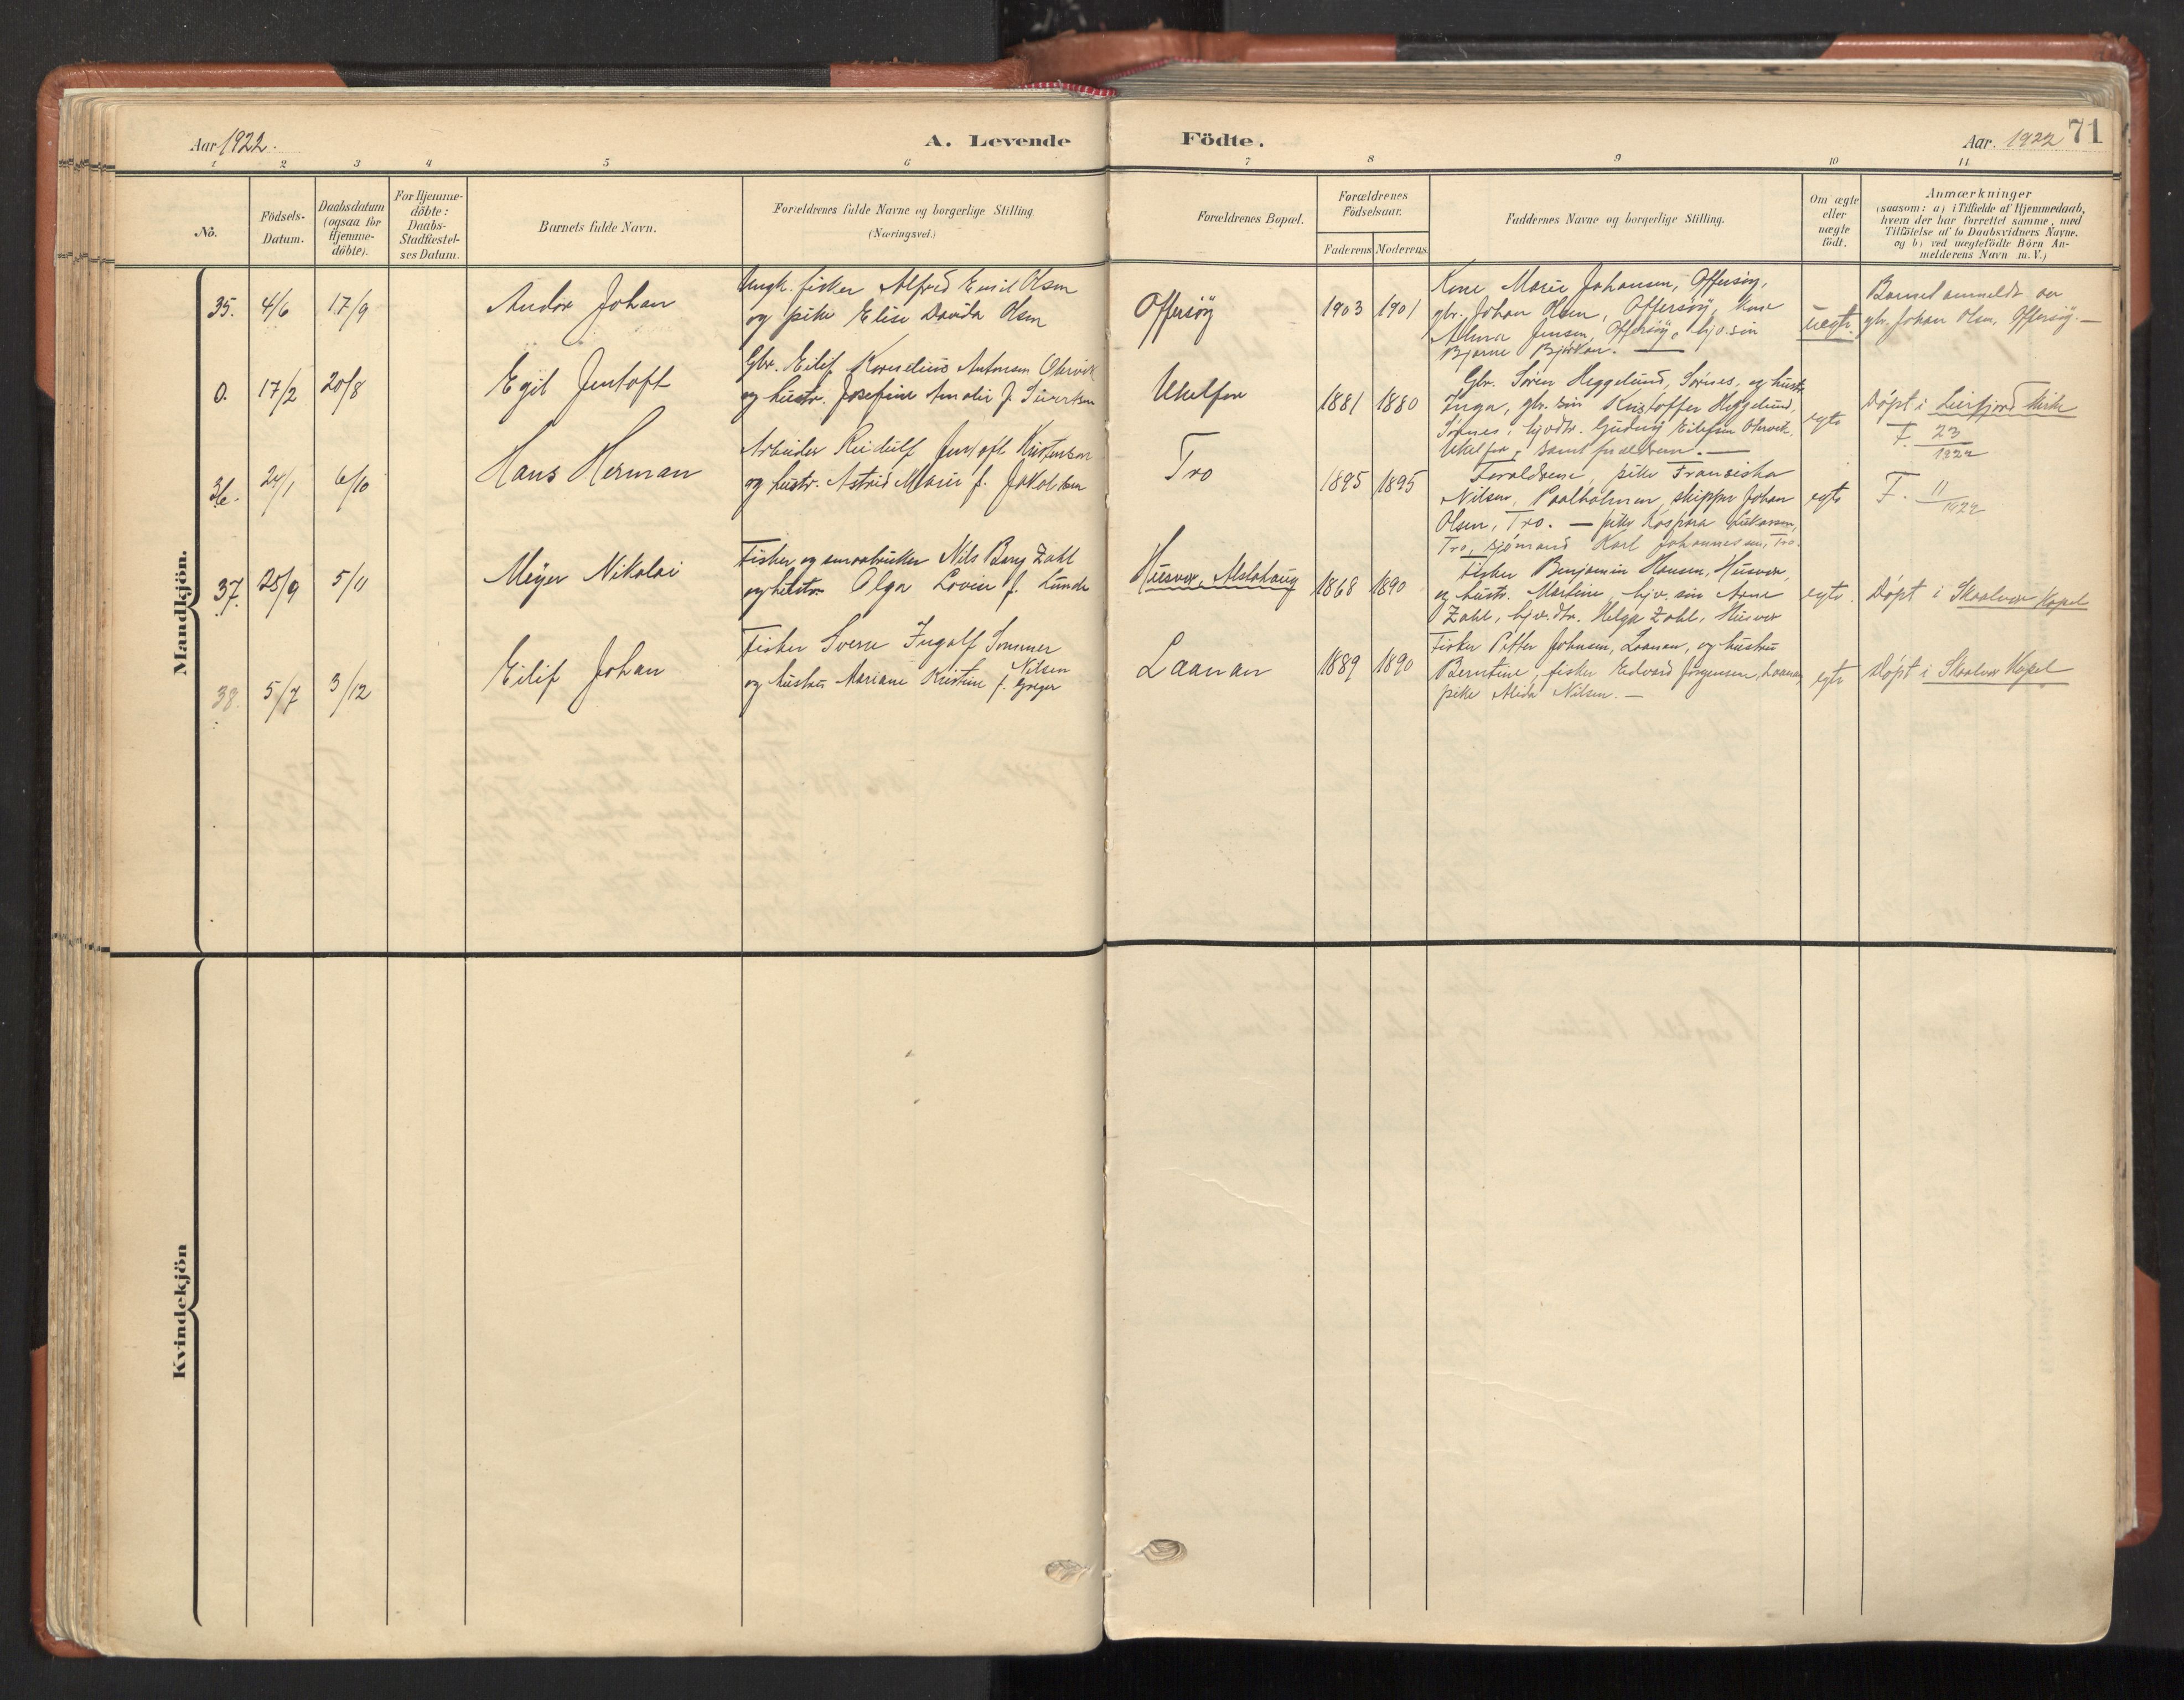 Aar 1922. A. Levende Födte. Aar. 1922 71
1 2 3 4 5 6 7 8 9 10 11
No.
Födsels-Datum.
Daabsdatum (ogsaa for Hjemme-döbte).
For Hjemme-döbte: Daabs-Stadfæstel-ses Datum.
Barnets fulde Navn.
Forældrenes fulde Navne og borgerlige Stilling.
(Næringsvei.)
Forældrenes Bopæl.
Forældrenes Födselsaar.
Faderens Moderens
Faddernes Navne og borgerlige Stilling.
Om ægte eller uægte födt.
Anmærkninger
(saasom: a) i Tilfælde af Hjemmedaab,
hvem der har forrettet samme, med
Tilföielse af to Daabsvidners Navne.
og b) ved uægtefödte Börn An-
melderens Navn m. V.)
Mandkjön.
35. 4/6 17/9 Andor Johan
Ungk. fisker Alfred Emil Olsen
og pike Elise Davida Olsen
Offersøy 1903 1901
Kone Marie Johansen, Offersøy,
gbr. Johan Olsen, Offersøy, kone
Jensen, Offersøy, hjv. sin
Bjarne
uegte
Barnet anmeldt av
gbr. Johan Olsen, Offersøy. —
0. 17/2 20/8 Egil Jentoft
Gbr. Eilif Kornelius Antonsen
og hustr. Josefine Amalie f. Sivertsen
1881 1880
Gbr. Søren Heggelund, Sørnes, og hustr.
Inga, gbr. søn Kristoffer Heggelund,
Sørnes, Eilifsen
samt forældrene. —
egte
Døpt i Leirfjord kirke
F. 23/1922
36. 24/1 6/10 Hans Herman
Arbeider Jentoft Kristensen
og hustr. Astrid Marie f. Jakobsen
Tro 1895 1895
Forældrene, pike Fransiska
Nilsen, skipper Johan
Olsen, Tro. — pike Kaspara
Tro, sjømand Karl Johannessen, Tro.
egte
F. 11/1922
37. 25/9 5/11 Meyer Nikolai
Fisker og smaabruker Nils Berg Zahl
og hustr. Olga Lovise f. Lunde
Husvær, Alstahaug 1868 1890
Fisker Benjamin Hansen, Husvær,
og hustr. Martine, hjv. søn Arne
Zahl, hjv. dtr. Helga Zahl, Husvær
egte.
Døpt i Skaalvær Kapel
38. 5/7 3/12 Eilif Johan
Fisker Sverre Ingolf Sommer
og hustru Mariane Kristine f. Nilsen
Laanan 1889 1890
Fisker Petter Johnsen, Laanan, og hustru
Berntine, fisker Edvard Jørgensen, Laanan,
pike Alida Nilsen. —
egte
Døpt i Skaalvær Kapel
Kvindekjön